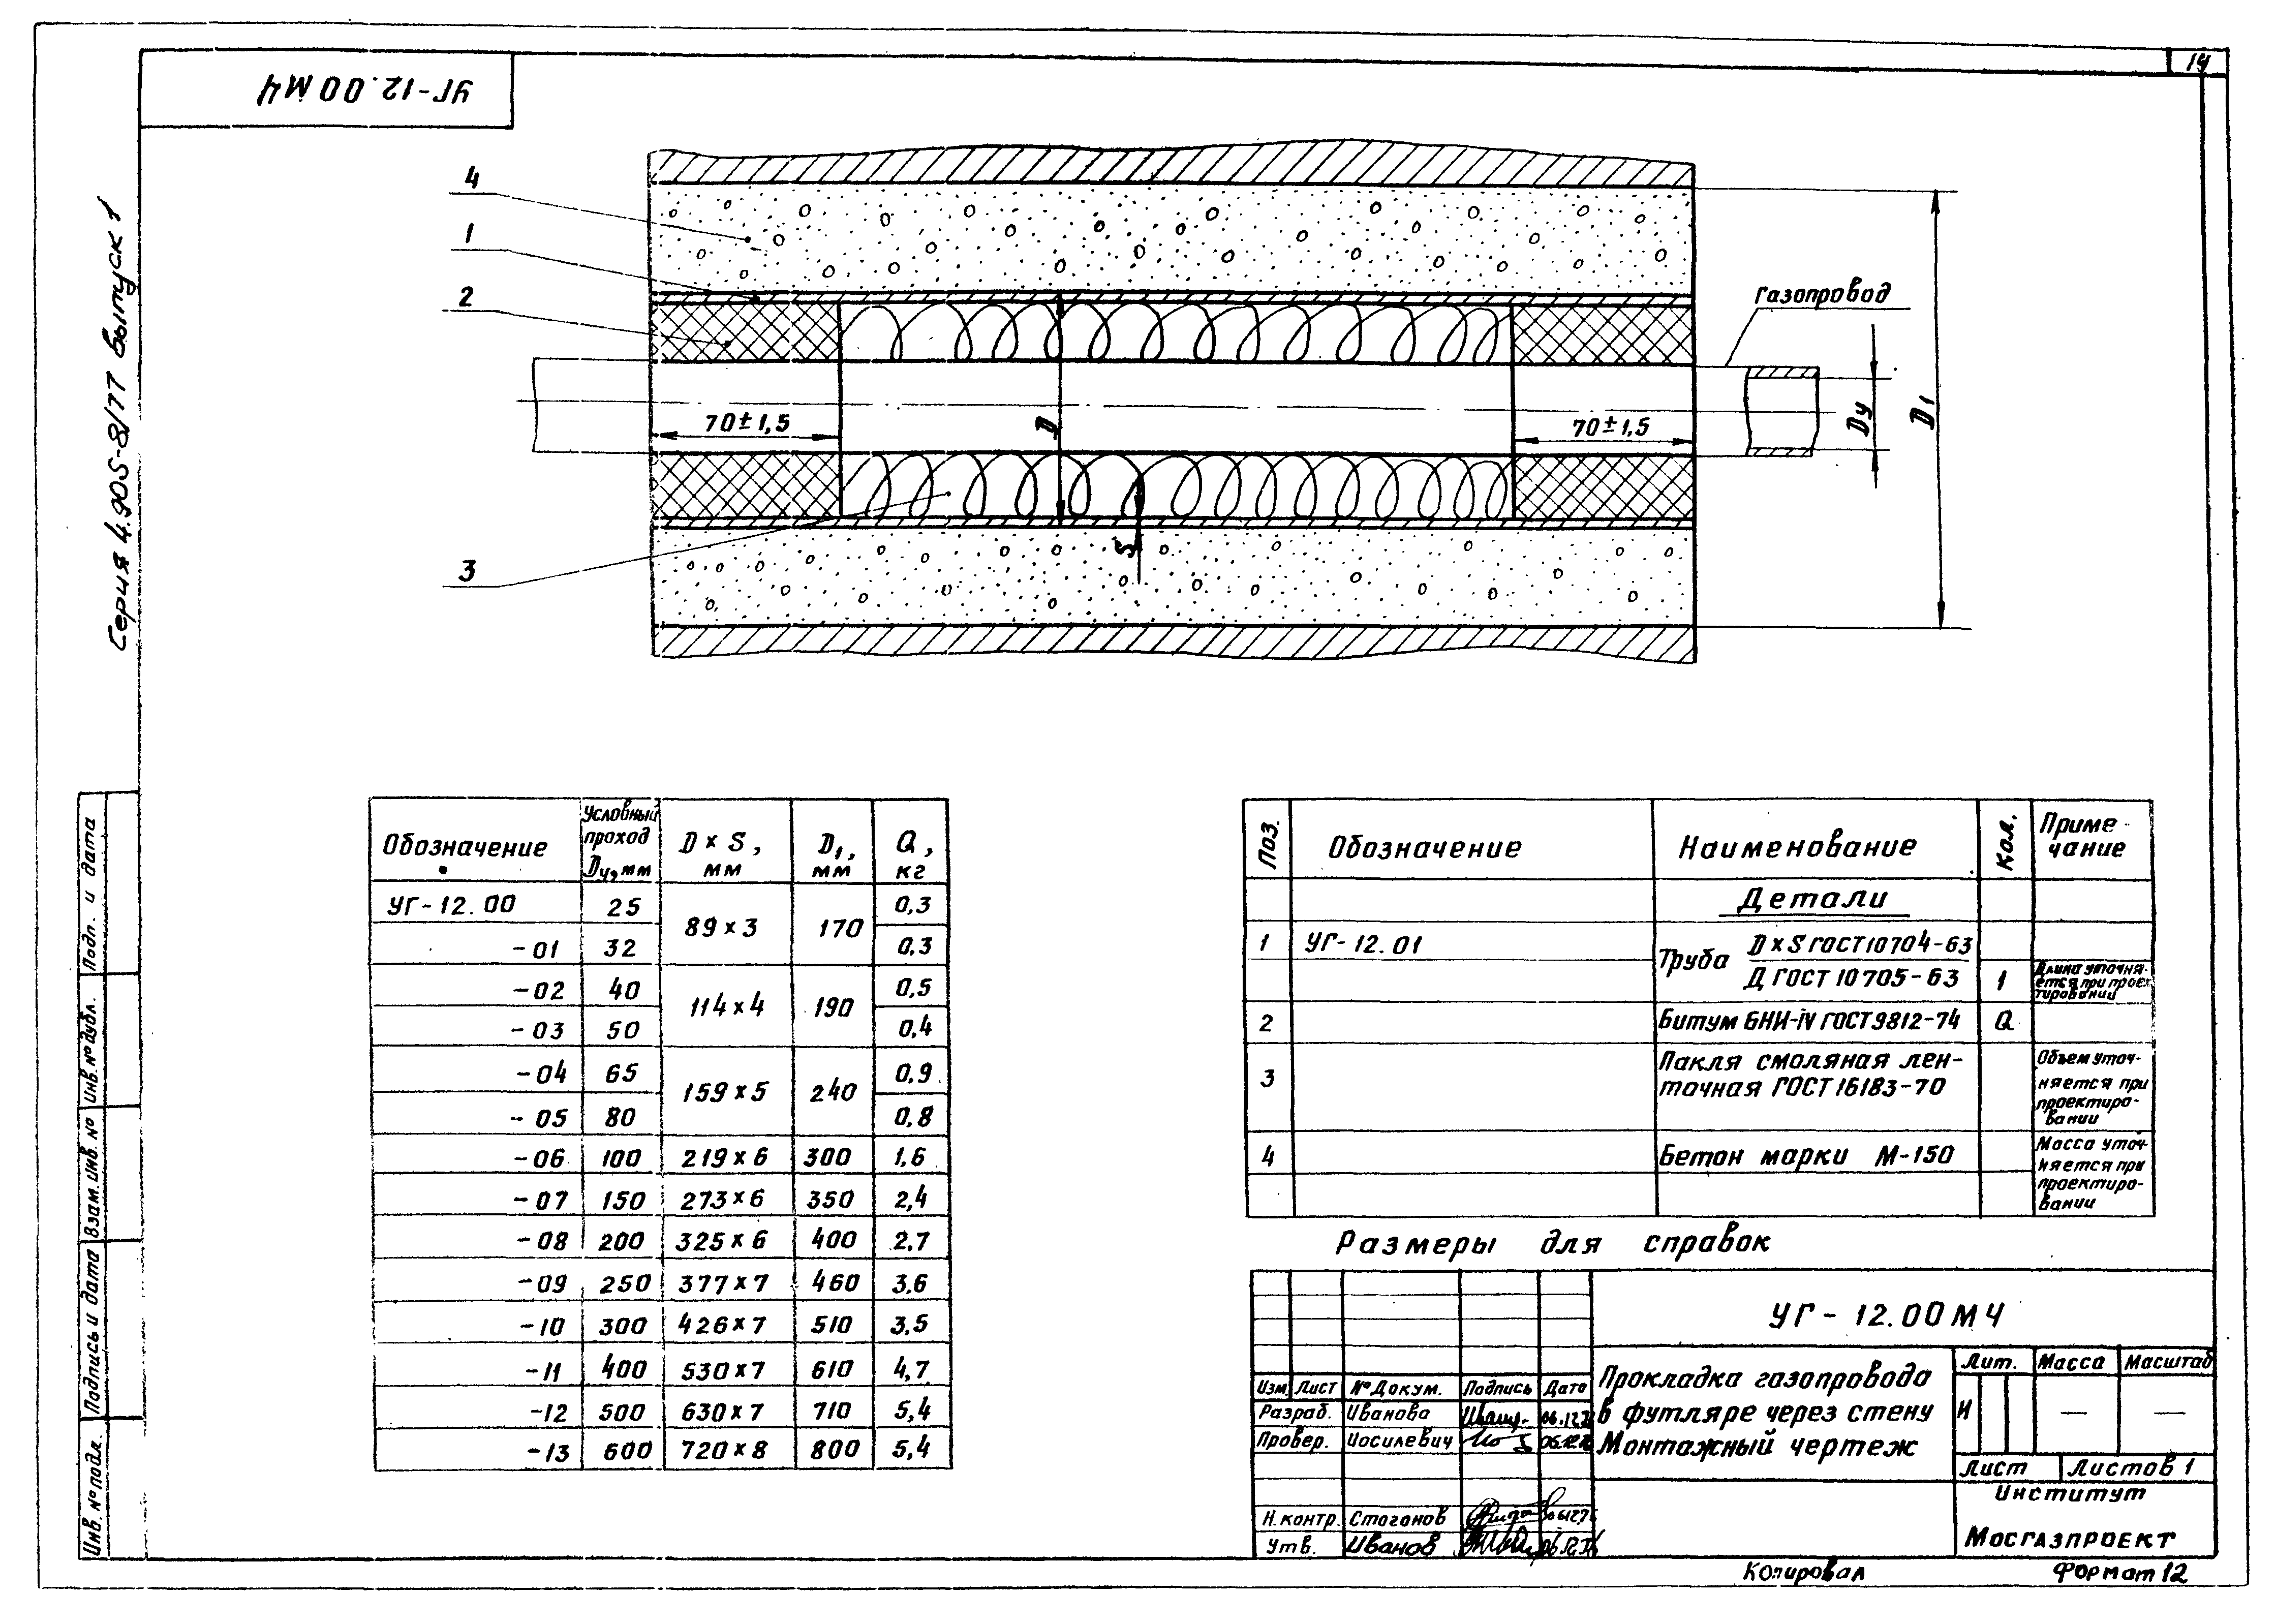 УГ-12.00МЧ
14
Серия 4.905-8/77 выпуск 1
4
1
2
3
газопровод
70±1,5
70±1,5
D
S
Dу
D1
Обозначение | Условный проход Dу, мм | D×S, мм | D1, мм | Q, кг
УГ-12.00 | 25 | 89×3 | 170 | 0,3
-01 | 32 | 0,3
-02 | 40 | 114×4 | 190 | 0,5
-03 | 50 | 0,4
-04 | 65 | 159×5 | 240 | 0,9
-05 | 80 | 0,8
-06 | 100 | 219×6 | 300 | 1,6
-07 | 150 | 273×6 | 350 | 2,4
-08 | 200 | 325×6 | 400 | 2,7
-09 | 250 | 377×7 | 460 | 3,6
-10 | 300 | 426×7 | 510 | 3,5
-11 | 400 | 530×7 | 610 | 4,7
-12 | 500 | 630×7 | 710 | 5,4
-13 | 600 | 720×8 | 800 | 5,4
Поз. | Обозначение | Наименование | Кол. | Приме-чание
Детали
1 | УГ-12.01 | Труба D×S ГОСТ 10704-63
Д ГОСТ 10705-63 | 1 | Длина уточня-
ется при проек-
тировании
2 | Битум БНИ-IV ГОСТ 9812-74 | Q
3 | Пакля смоляная лен-
точная ГОСТ 16183-70 | Объем уточ-
няется при
проектиро-
вании
4 | Бетон марки М-150 | Масса уточ-
няется при
проектиро-
вании
Размеры для справок
УГ-12.00МЧ
Прокладка газопровода
в футляре через стену
Монтажный чертеж
Лит. | Масса | Масштаб
И | — | —
Лист | Листов 1
Институт
Мосгазпроект
Изм | Лист | № Докум. | Подпись | Дата
Разраб. | Иванова
Провер. | Иосилевич
Н.контр. | Стоганов
Утв. | Иванов
Копировал
Формат 12
Подп. и дата
Инв.№ дубл.
Взам.инв. №
Подпись и дата
Инв.№ подл.